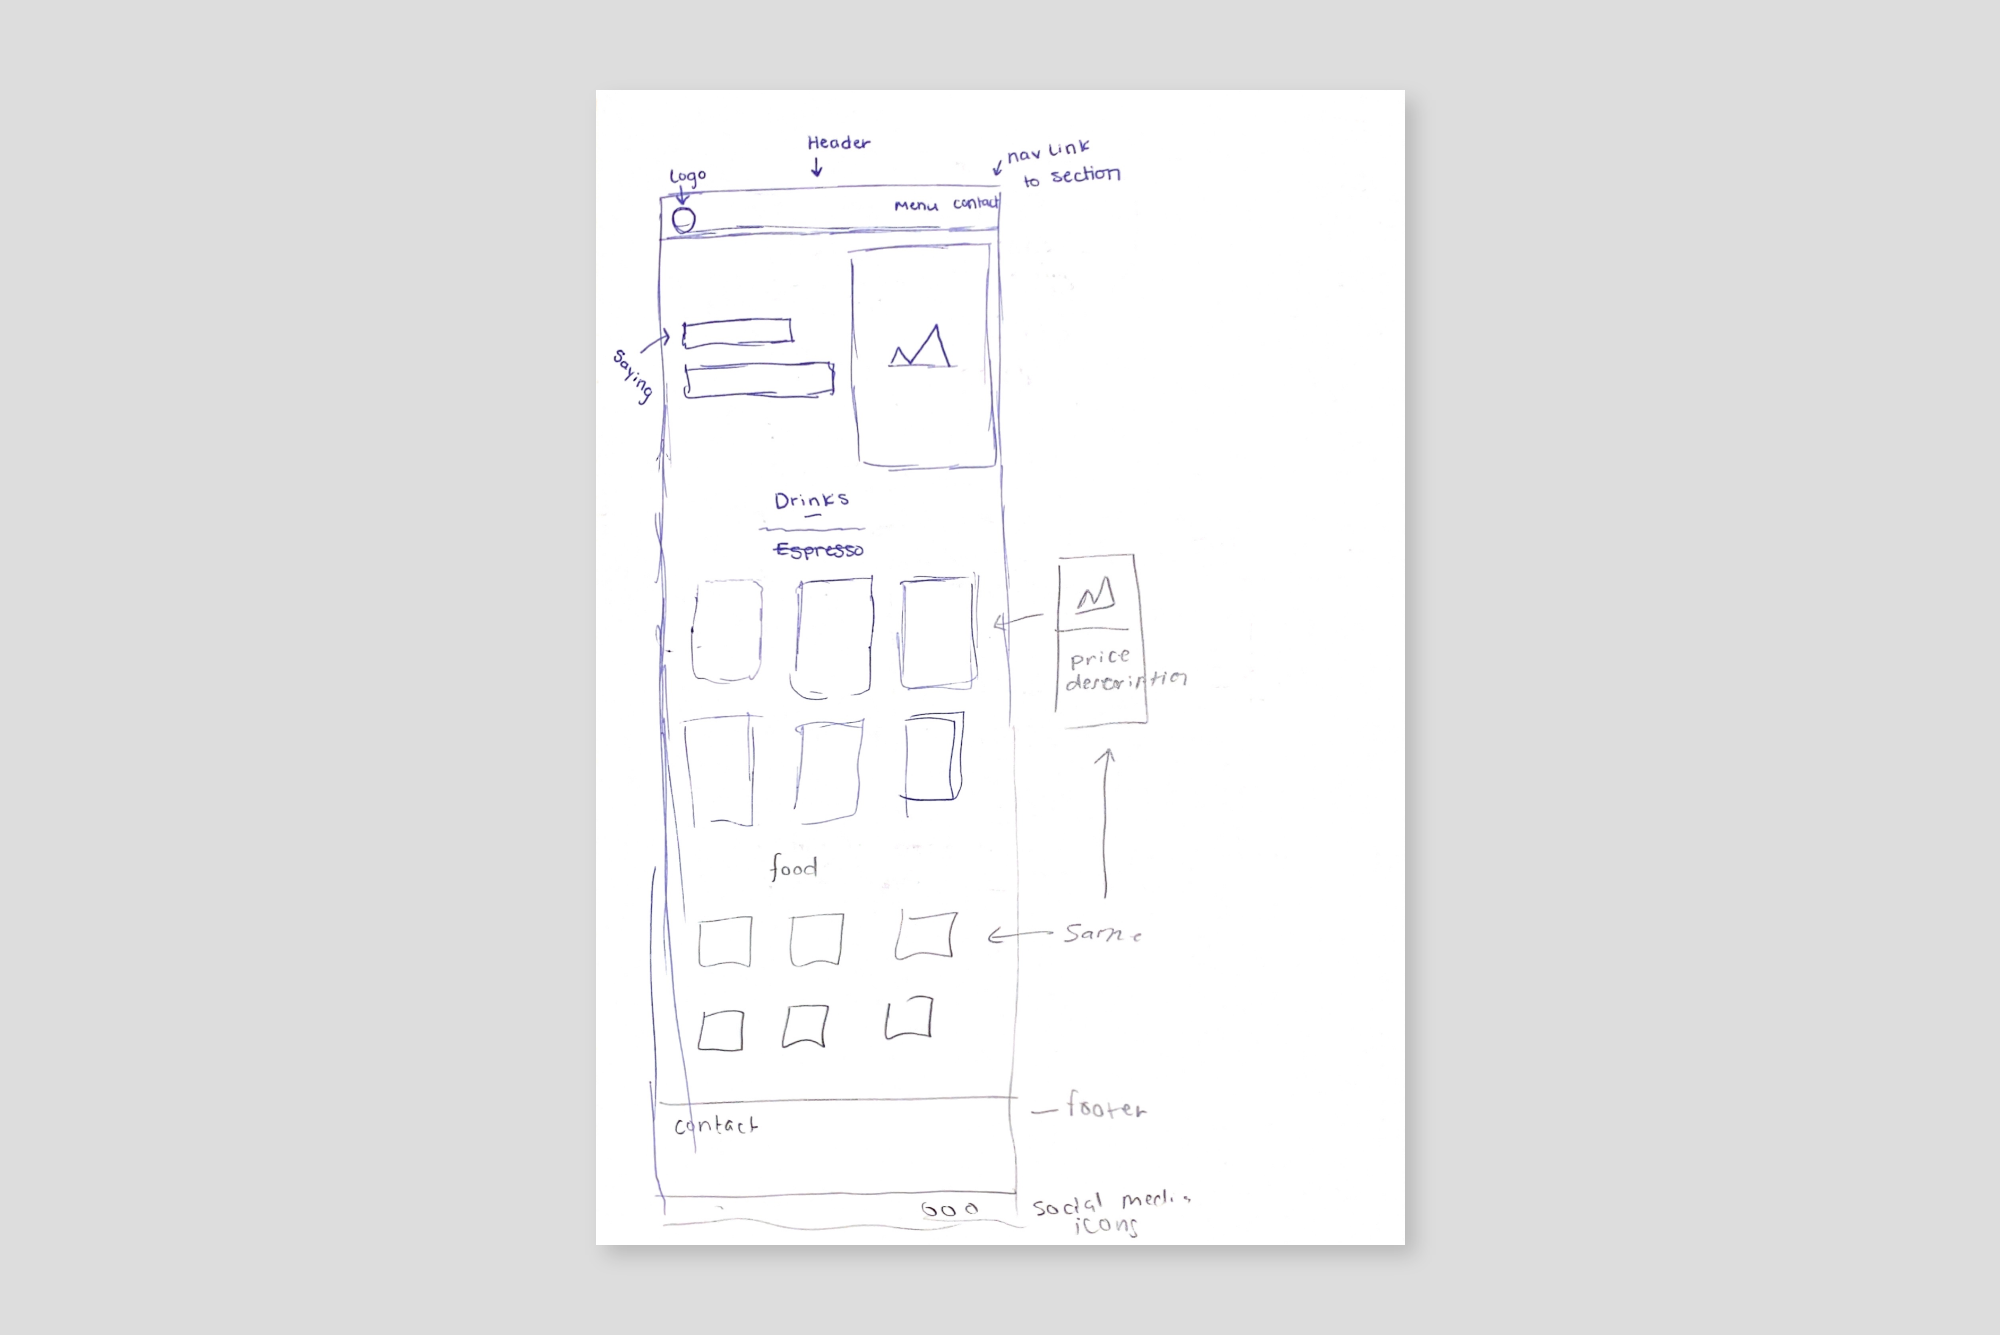 Header
nav link
to section
Logo
Menu contact
Saying
Drinks
Espresso
price
description
food
Same
footer
contact
social media
icons